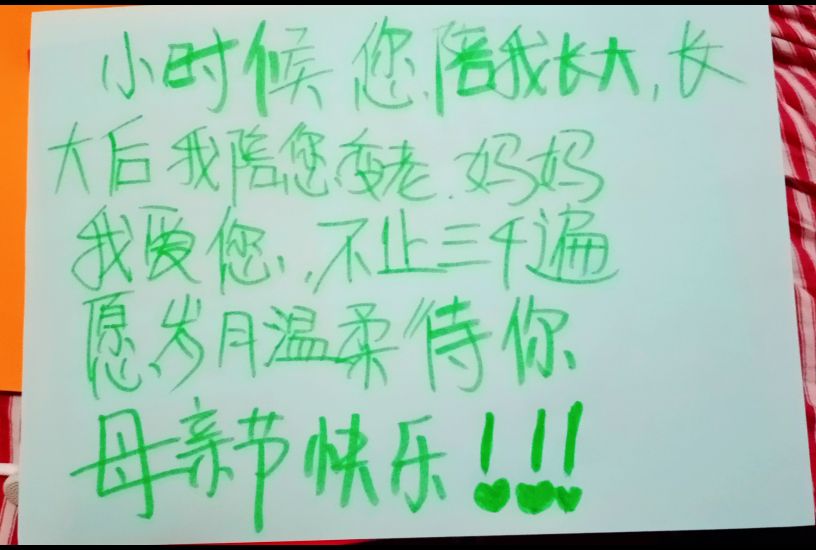 小时候您陪我长大,长
大后我陪您变老.妈妈
我爱您,不止三千遍
愿岁月温柔待你
母亲节快乐!!!